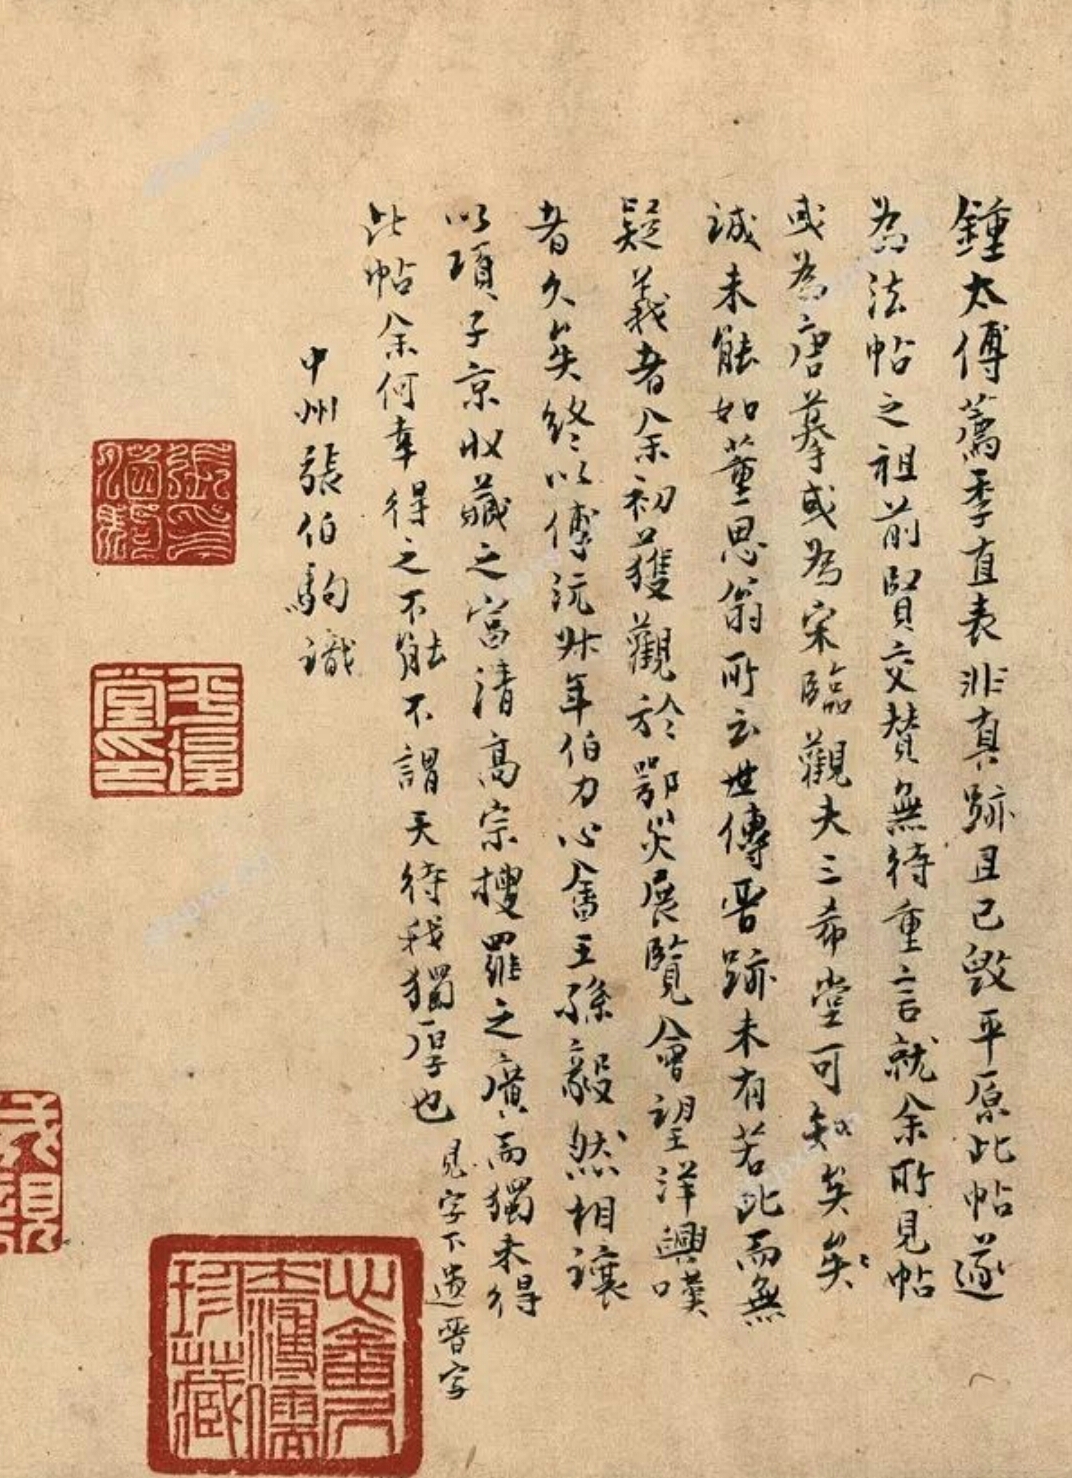 鍾太傅薦季直表非真跡且已毀平原此帖遂
為法帖之祖前賢交贊無待重言就余所見帖
或為唐摹或為宋臨觀夫三希堂可知矣矣
誠未能如董思翁所云世傳晉跡未有若此而無
疑義者余初獲觀於鄂災展覽會望洋興嘆
者久矣終以傅沅叔年伯力心畬王孫毅然相讓
以項子京收藏之富清高宗搜羅之廣而獨未得
此帖余何幸得之不能不謂天待我獨厚也
見字下遺晉字
中州張伯駒識
張印
伯駒
平復
堂印
心畬
溥儒
珍藏